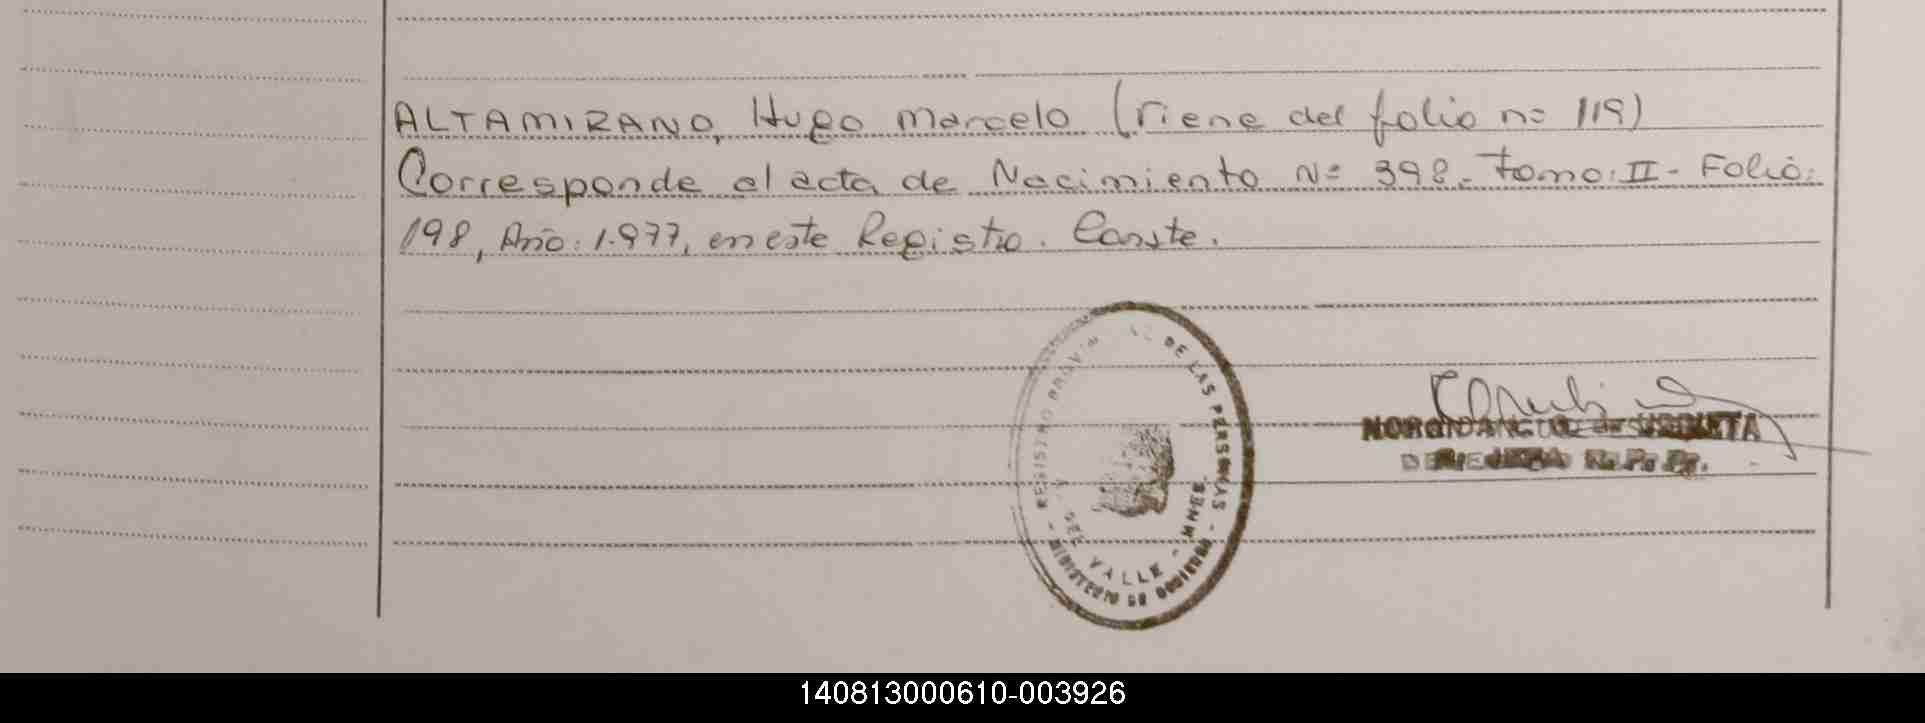 ALTAMIRANO, Hugo Marcelo (viene del folio nº 119)
Corresponde al acta de Nacimiento Nº 398. Tomo: II - Folio:
198, Año: 1.977, en este Registro. Conste.
REGISTRO PROVIN AL DE LAS PERSONAS -
MINISTERIO DE GOBIERNO -
DEL VALLE -
URRIETA
R. P. P.
140813000610-003926